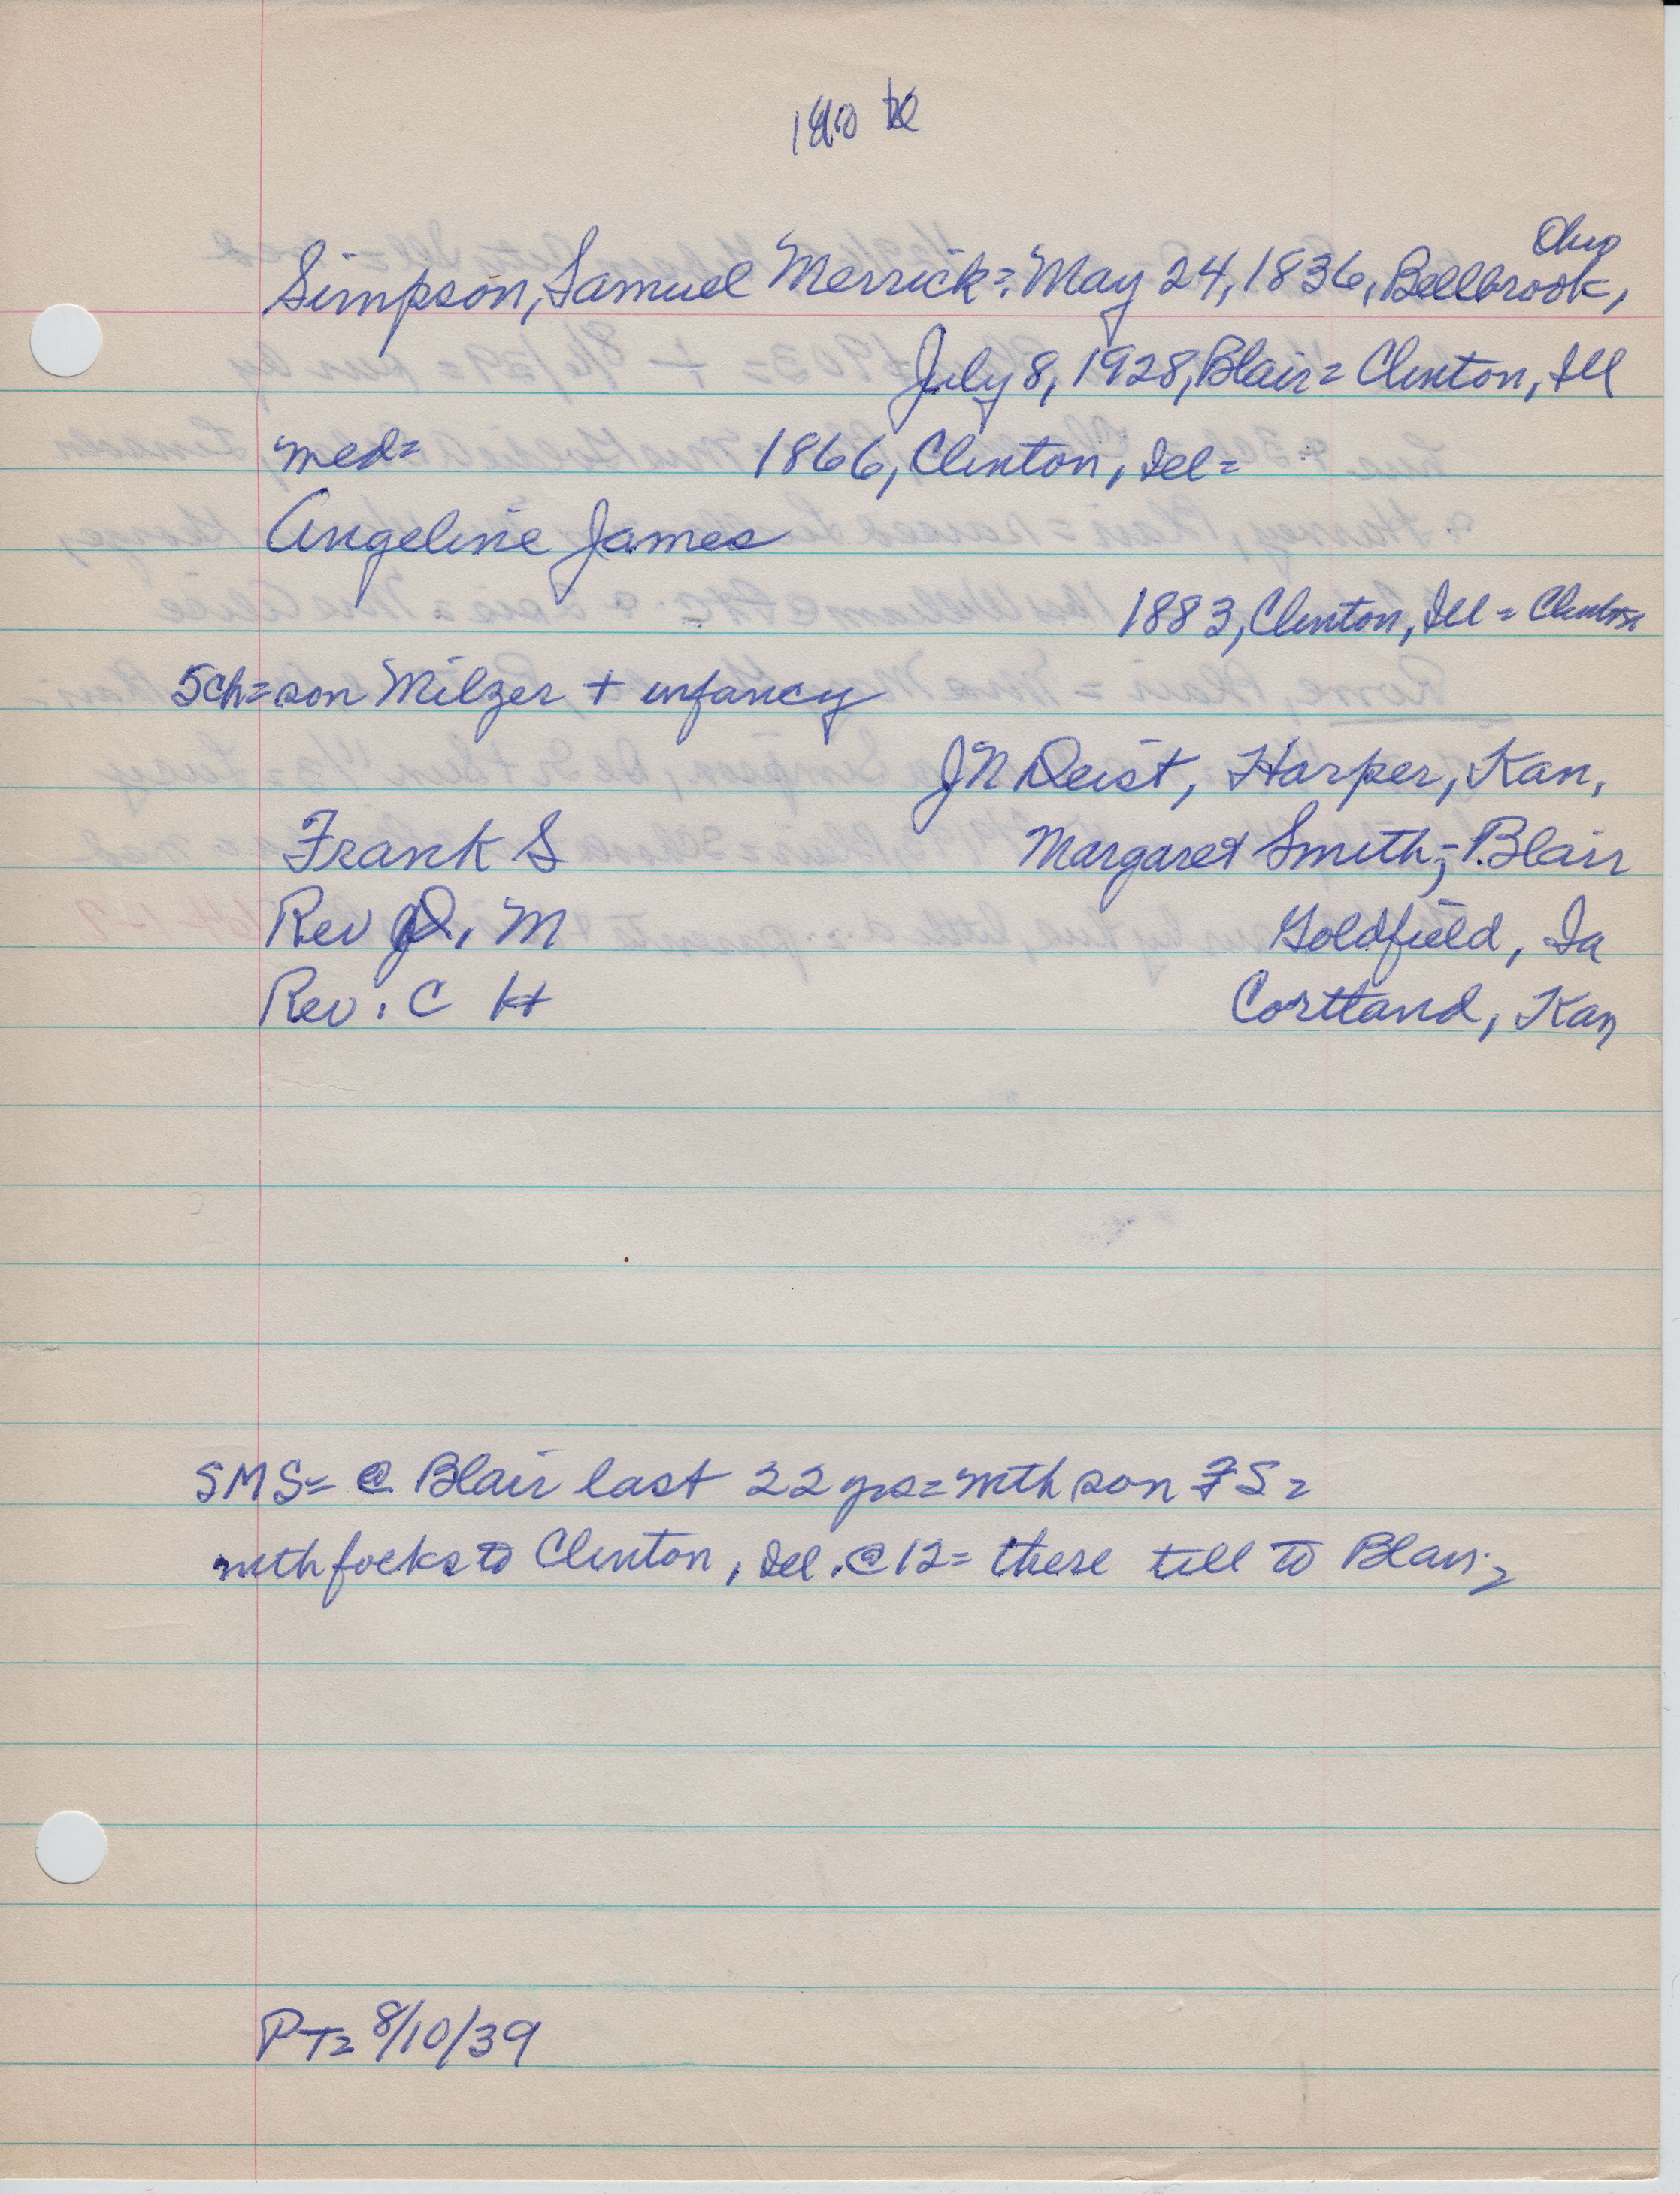 Simpson, Samuel Merrick = May 24, 1836, Bellbrook, Ohio
July 8, 1928, Blair = Clinton, Ill
med = 1866, Clinton, Ill =
Angeline James
1883, Clinton, Ill = Clinton
5ch = son Milzer + infancy
JN Deist, Harper, Kan,
Frank S Margaret Smith = Blair
Rev J, M Goldfield, Ia
Rev. C H Cortland, Kan
SMS = @ Blair last 22 yrs = with son FS =
with focks to Clinton, Ill. @ 12 = there till to Blair =
PT = 8/10/39